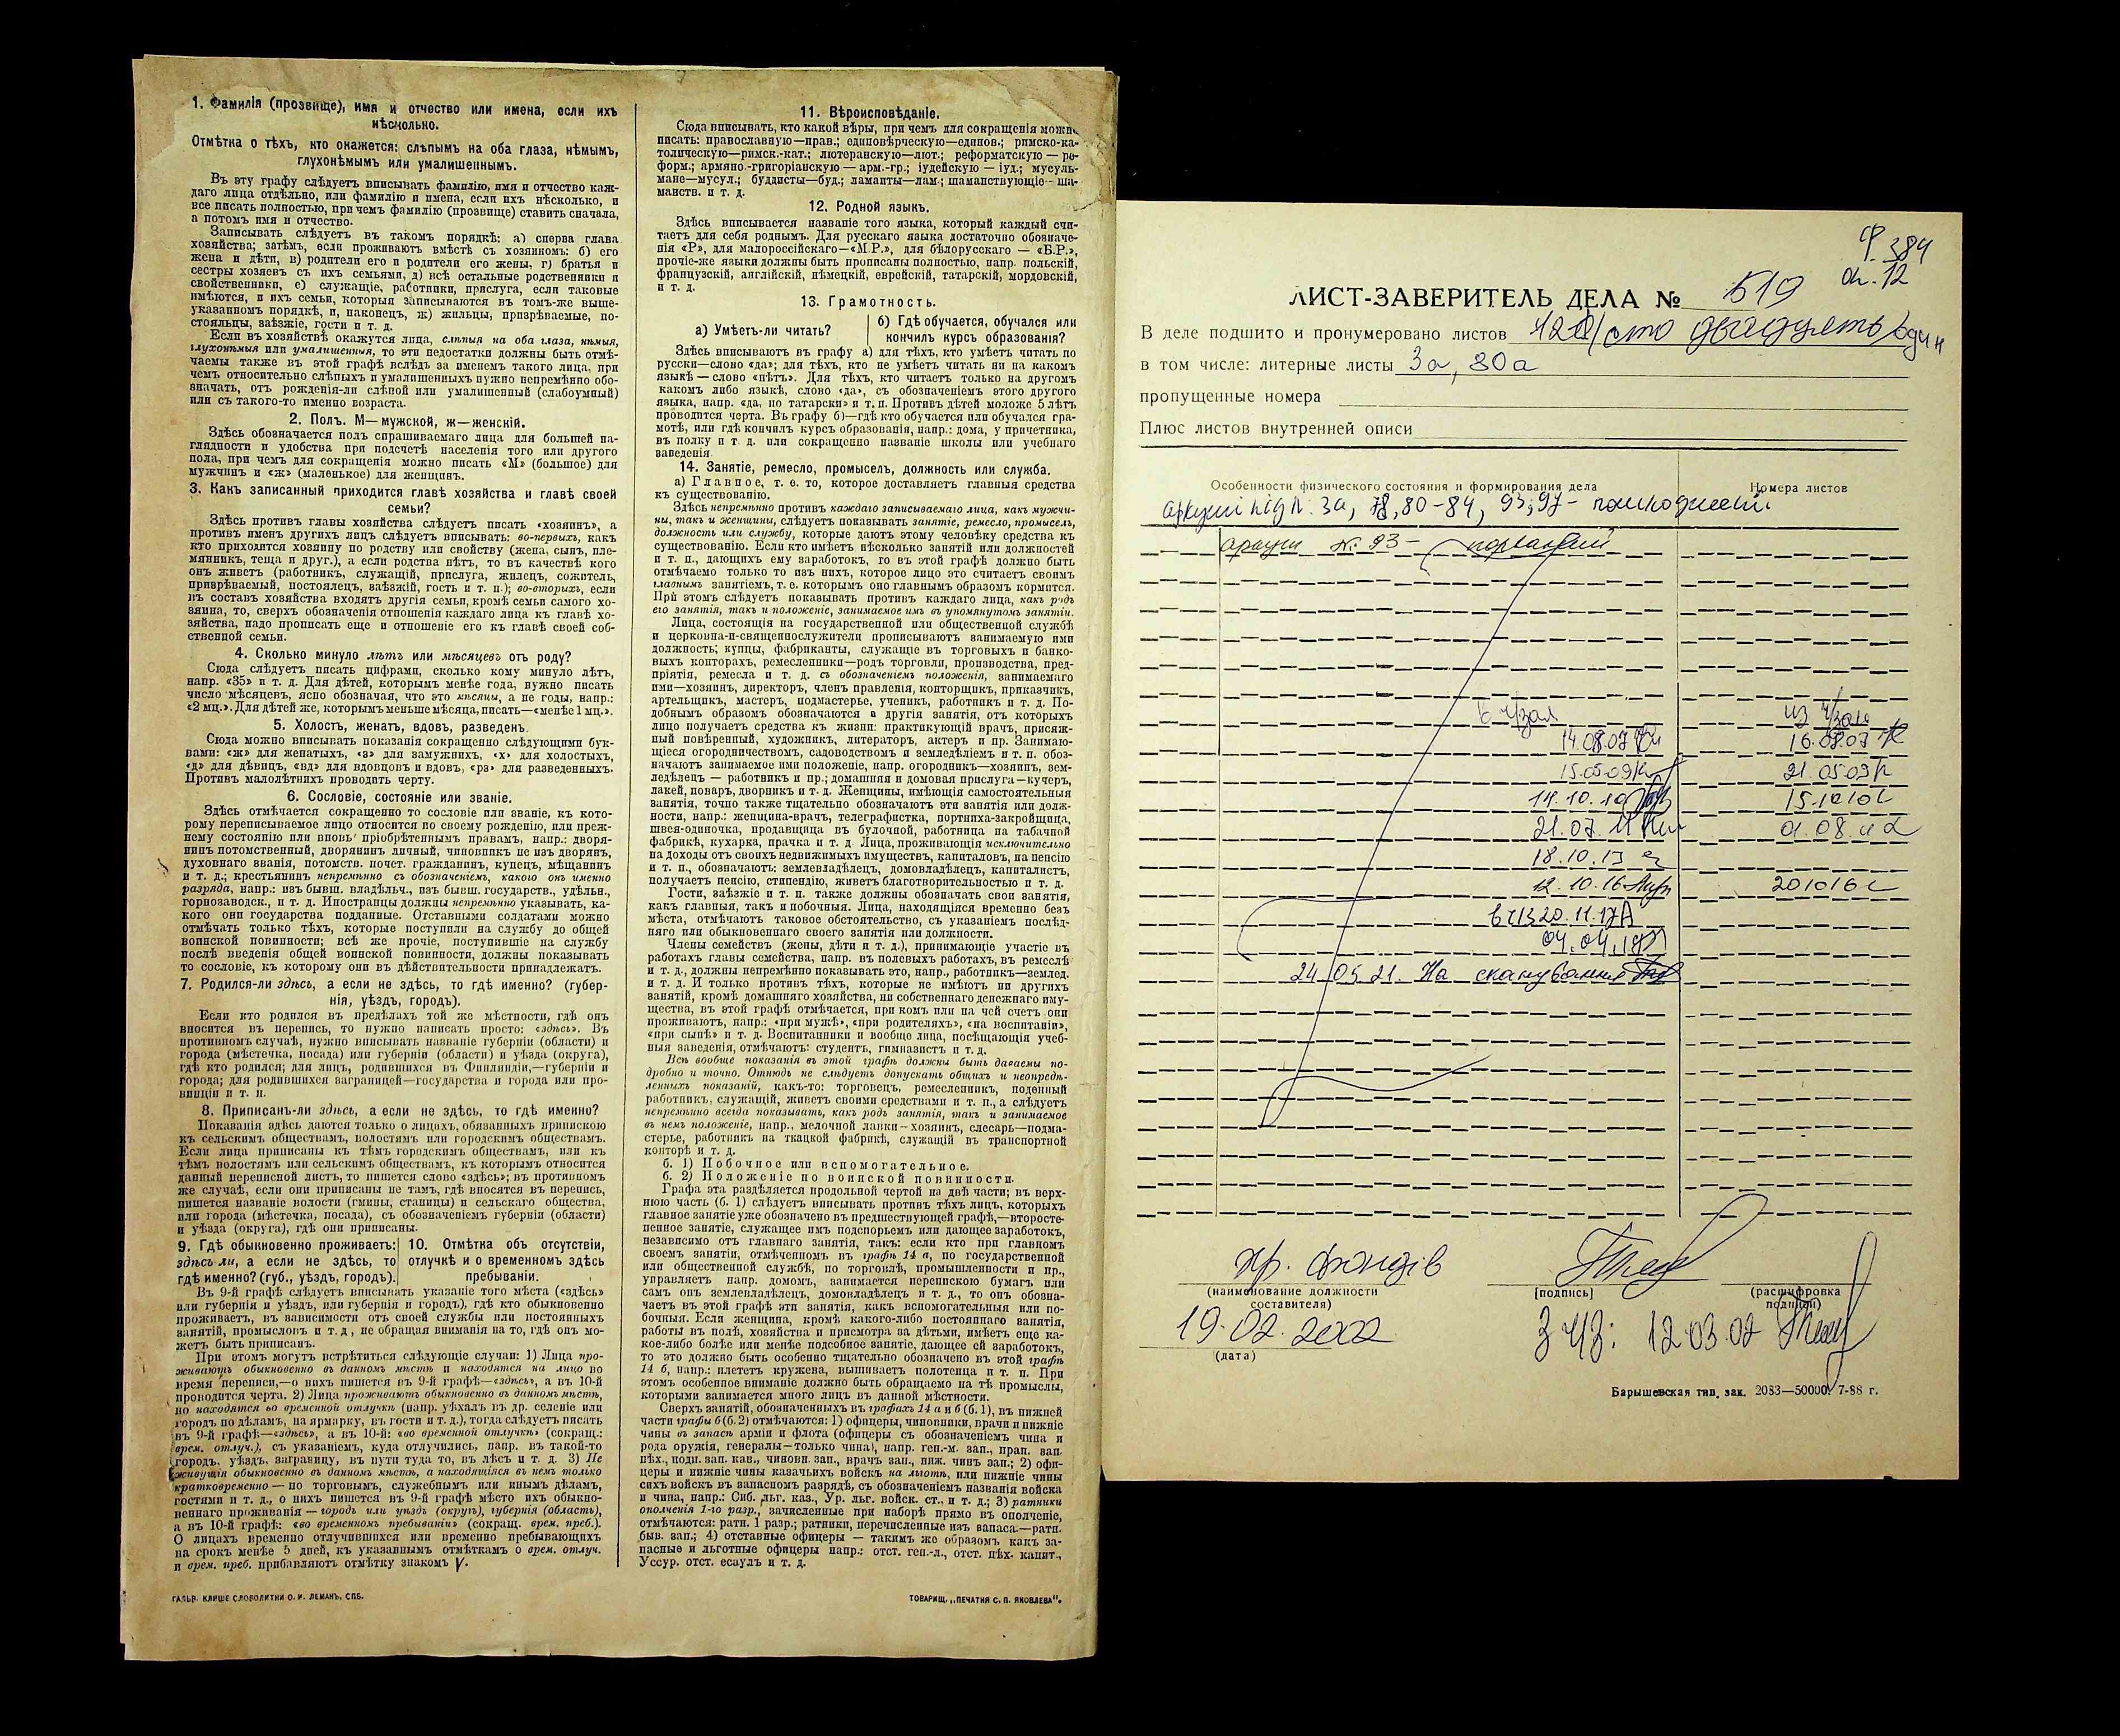 1. Фамилія (прозвище), имя и отчество или имена, если ихъ
нѣсколько.
Отмѣтка о тѣхъ, кто окажется: слѣпымъ на оба глаза, нѣмымъ,
глухонѣмымъ или умалишеннымъ.
Въ эту графу слѣдуетъ вписывать фамилію, имя и отчество каж-
даго лица отдѣльно, или фамилію и имена, если ихъ нѣсколько, и
все писать полностью, при чемъ фамилію (прозвище) ставить сначала,
а потомъ имя и отчество.
Записывать слѣдуетъ въ такомъ порядкѣ: а) сперва глава
хозяйства; затѣмъ, если проживаютъ вмѣстѣ съ хозяиномъ: б) его
жена и дѣти, в) родители его и родители его жены, г) братья и
сестры хозяевъ съ ихъ семьями, д) всѣ остальные родственники и
свойственники, е) служащіе, работники, прислуга, если таковые
имѣются, и ихъ семьи, которыя записываются въ томъ-же выше-
указанномъ порядкѣ, и, наконецъ, ж) жильцы, призрѣваемые, по-
стояльцы, заѣзжіе, гости и т. д.
Если въ хозяйствѣ окажутся лица, слѣпыя на оба глаза, нѣмыя,
глухонѣмыя или умалишенныя, то эти недостатки должны быть отмѣ-
чаемы также въ этой графѣ вслѣдъ за именемъ такого лица, при
чемъ относительно слѣпыхъ и умалишенныхъ нужно непремѣнно обо-
значать, отъ рожденія-ли слѣпой или умалишенный (слабоумный)
или съ такого-то именно возраста.
2. Полъ. М—мужской, ж—женскій.
Здѣсь обозначается полъ спрашиваемаго лица для большей на-
глядности и удобства при подсчетѣ населенія того или другого
пола, при чемъ для сокращенія можно писать «М» (большое) для
мужчинъ и «ж» (маленькое) для женщинъ.
3. Какъ записанный приходится главѣ хозяйства и главѣ своей
семьи?
Здѣсь противъ главы хозяйства слѣдуетъ писать «хозяинъ», а
противъ именъ другихъ лицъ слѣдуетъ вписывать: во-первыхъ, какъ
кто приходится хозяину по родству или свойству (жена, сынъ, пле-
мянникъ, теща и друг.), а если родства нѣтъ, то въ качествѣ кого
онъ живетъ (работникъ, служащій, прислуга, жилецъ, сожитель,
призрѣваемый, постоялецъ, заѣзжій, гость и т. п.); во-вторыхъ, если
въ составъ хозяйства входятъ другія семьи, кромѣ семьи самого хо-
зяина, то, сверхъ обозначенія отношенія каждаго лица къ главѣ хо-
зяйства, надо прописать еще и отношеніе его къ главѣ своей соб-
ственной семьи.
4. Сколько минуло лѣтъ или мѣсяцевъ отъ роду?
Сюда слѣдуетъ писать цифрами, сколько кому минуло лѣтъ,
напр. «35» и т. д. Для дѣтей, которымъ менѣе года, нужно писать
число мѣсяцевъ, ясно обозначая, что это мѣсяцы, а не годы, напр.:
«2 мц.». Для дѣтей же, которымъ меньше мѣсяца, писать—«менѣе 1 мц.».
5. Холостъ, женатъ, вдовъ, разведенъ.
Сюда можно вписывать показанія сокращенно слѣдующими бук-
вами: «ж» для женатыхъ, «з» для замужнихъ, «х» для холостыхъ,
«д» для дѣвицъ, «вд» для вдовцовъ и вдовъ, «рз» для разведенныхъ.
Противъ малолѣтнихъ проводить черту.
6. Сословіе, состояніе или званіе.
Здѣсь отмѣчается сокращенно то сословіе или званіе, къ кото-
рому переписываемое лицо относится по своему рожденію, или преж-
нему состоянію или вновь пріобрѣтеннымъ правамъ, напр.: дворя-
нинъ потомственный, дворянинъ личный, чиновникъ не изъ дворянъ,
духовнаго званія, потомств. почет. гражданинъ, купецъ, мѣщанинъ
и т. д.; крестьянинъ непремѣнно съ обозначеніемъ, какого онъ именно
разряда, напр.: изъ бывш. владѣльч., изъ бывш. государств., удѣльн.,
горнозаводск., и т. д. Иностранцы должны непремѣнно указывать, ка-
кого они государства подданные. Отставными солдатами можно
отмѣчать только тѣхъ, которые поступили на службу до общей
воинской повинности; всѣ же прочіе, поступившіе на службу
послѣ введенія общей воинской повинности, должны показывать
то сословіе, къ которому они въ дѣйствительности принадлежатъ.
7. Родился-ли здѣсь, а если не здѣсь, то гдѣ именно? (губер-
нія, уѣздъ, городъ).
Если кто родился въ предѣлахъ той же мѣстности, гдѣ онъ
вносится въ перепись, то нужно написать просто: «здѣсь». Въ
противномъ случаѣ, нужно вписывать названіе губерніи (области) и
города (мѣстечка, посада) или губерніи (области) и уѣзда (округа),
гдѣ кто родился; для лицъ, родившихся въ Финляндіи,—губерніи и
города; для родившихся заграницей—государства и города или про-
винціи и т. п.
8. Приписанъ-ли здѣсь, а если не здѣсь, то гдѣ именно?
Показанія здѣсь даются только о лицахъ, обязанныхъ припискою
къ сельскимъ обществамъ, волостямъ или городскимъ обществамъ.
Если лица приписаны къ тѣмъ городскимъ обществамъ, или къ
тѣмъ волостямъ или сельскимъ обществамъ, къ которымъ относится
данный переписной листъ, то пишется слово «здѣсь»; въ противномъ
же случаѣ, если они приписаны не тамъ, гдѣ вносятся въ перепись,
пишется названіе волости (гмины, станицы) и сельскаго общества,
или города (мѣстечка, посада), съ обозначеніемъ губерніи (области)
и уѣзда (округа), гдѣ они приписаны.
9. Гдѣ обыкновенно проживаетъ:
здѣсь-ли, а если не здѣсь, то
гдѣ именно? (губ., уѣздъ, городъ).
10. Отмѣтка объ отсутствіи,
отлучкѣ и о временномъ здѣсь
пребываніи.
Въ 9-й графѣ слѣдуетъ вписывать указаніе того мѣста («здѣсь»
или губернія и уѣздъ, или губернія и городъ), гдѣ кто обыкновенно
проживаетъ, въ зависимости отъ своей службы или постоянныхъ
занятій, промысловъ и т. д., не обращая вниманія на то, гдѣ онъ мо-
жетъ быть приписанъ.
При этомъ могутъ встрѣтиться слѣдующіе случаи: 1) Лица про-
живаютъ обыкновенно въ данномъ мѣстѣ и находятся на лицо во
время переписи,—о нихъ пишется въ 9-й графѣ—«здѣсь», а въ 10-й
проводится черта. 2) Лица проживаютъ обыкновенно въ данномъ мѣстѣ,
но находятся во временной отлучкѣ (напр. уѣхалъ въ др. селеніе или
городъ по дѣламъ, на ярмарку, въ гости и т. д.), тогда слѣдуетъ писать
въ 9-й графѣ—«здѣсь», а въ 10-й: «во временной отлучкѣ» (сокращ.:
врем. отлуч.), съ указаніемъ, куда отлучились, напр. въ такой-то
городъ, уѣздъ, заграницу, въ пути туда то, въ лѣсъ и т. д. 3) Не
живущія обыкновенно въ данномъ мѣстѣ, а находящіяся въ немъ только
кратковременно — по торговымъ, служебнымъ или инымъ дѣламъ,
гостями и т. д., о нихъ пишется въ 9-й графѣ мѣсто ихъ обыкно-
веннаго проживанія — городъ или уѣздъ (округъ), губернія (область),
а въ 10-й графѣ: «во временномъ пребываніи» (сокращ. врем. преб.).
О лицахъ временно отлучившихся или временно пребывающихъ
на срокъ менѣе 5 дней, къ указаннымъ отмѣткамъ о врем. отлуч.
и врем. преб. прибавляютъ отмѣтку знакомъ V.
ГАЛЬВ. КЛИШЕ СЛОВОЛИТНИ О. И. ЛЕМАНЪ, СПБ.
11. Вѣроисповѣданіе.
Сюда вписывать, кто какой вѣры, при чемъ для сокращенія можно
писать: православную—прав.; единовѣрческую—единов.; римско-ка-
толическую—римск.-кат.; лютеранскую—лют.; реформатскую — ре-
форм.; армяно.-григоріанскую — арм.-гр.; іудейскую — іуд.; мусуль-
мане—мусул.; буддисты—буд.; ламаиты—лам.; шаманствующіе— ша-
манств. и т. д.
12. Родной языкъ.
Здѣсь вписывается названіе того языка, который каждый счи-
таетъ для себя роднымъ. Для русскаго языка достаточно обозначе-
нія «Р», для малороссійскаго—«М.Р.», для бѣлорусскаго — «Б.Р.»,
прочіе-же языки должны быть прописаны полностью, напр. польскій,
французскій, англійскій, нѣмецкій, еврейскій, татарскій, мордовскій,
и т. д.
13. Грамотность.
а) Умѣетъ-ли читать?
б) Гдѣ обучается, обучался или
кончилъ курсъ образованія?
Здѣсь вписываютъ въ графу а) для тѣхъ, кто умѣетъ читать по
русски—слово «да»; для тѣхъ, кто не умѣетъ читать ни на какомъ
языкѣ — слово «нѣтъ». Для тѣхъ, кто читаетъ только на другомъ
какомъ либо языкѣ, слово «да», съ обозначеніемъ этого другого
языка, напр. «да, по татарски» и т. п. Противъ дѣтей моложе 5 лѣтъ
проводится черта. Въ графу б)—гдѣ кто обучается или обучался гра-
мотѣ, или гдѣ кончилъ курсъ образованія, напр.: дома, у причетника,
въ полку и т. д. или сокращенно названіе школы или учебнаго
заведенія.
14. Занятіе, ремесло, промыселъ, должность или служба.
а) Главное, т. е. то, которое доставляетъ главныя средства
къ существованію.
Здѣсь непремѣнно противъ каждаго записываемаго лица, какъ мужчи-
ны, такъ и женщины, слѣдуетъ показывать занятіе, ремесло, промыселъ,
должность или службу, которые даютъ этому человѣку средства къ
существованію. Если кто имѣетъ нѣсколько занятій или должностей
и т. п., дающихъ ему заработокъ, то въ этой графѣ должно быть
отмѣчаемо только то изъ нихъ, которое лицо это считаетъ своимъ
главнымъ занятіемъ, т. е. которымъ оно главнымъ образомъ кормится.
При этомъ слѣдуетъ показывать противъ каждаго лица, какъ родъ
его занятія, такъ и положеніе, занимаемое имъ въ упомянутомъ занятіи.
Лица, состоящія на государственной или общественной службѣ
и церковно-и-священнослужители прописываютъ занимаемую ими
должность; купцы, фабриканты, служащіе въ торговыхъ и банко-
выхъ конторахъ, ремесленники—родъ торговли, производства, пред-
пріятія, ремесла и т. д. съ обозначеніемъ положенія, занимаемаго
ими—хозяинъ, директоръ, членъ правленія, конторщикъ, приказчикъ,
артельщикъ, мастеръ, подмастерье, ученикъ, работникъ и т. д. По-
добнымъ образомъ обозначаются и другія занятія, отъ которыхъ
лицо получаетъ средства къ жизни: практикующій врачъ, присяж-
ный повѣренный, художникъ, литераторъ, актеръ и пр. Занимаю-
щіеся огородничествомъ, садоводствомъ и земледѣліемъ и т. п. обоз-
начаютъ занимаемое ими положеніе, напр. огородникъ—хозяинъ, зем-
ледѣлецъ — работникъ и пр.; домашняя и домовая прислуга—кучеръ,
лакей, поваръ, дворникъ и т. д. Женщины, имѣющія самостоятельныя
занятія, точно также тщательно обозначаютъ эти занятія или долж-
ности, напр.: женщина-врачъ, телеграфистка, портниха-закройщица,
швея-одиночка, продавщица въ булочной, работница на табачной
фабрикѣ, кухарка, прачка и т. д. Лица, проживающія исключительно
на доходы отъ своихъ недвижимыхъ имуществъ, капиталовъ, на пенсію
и т. п., обозначаютъ: землевладѣлецъ, домовладѣлецъ, капиталистъ,
получаетъ пенсію, стипендію, живетъ благотворительностью и т. д.
Гости, заѣзжіе и т. п. также должны обозначать свои занятія,
какъ главныя, такъ и побочныя. Лица, находящіяся временно безъ
мѣста, отмѣчаютъ таковое обстоятельство, съ указаніемъ послѣд-
няго или обыкновеннаго своего занятія или должности.
Члены семействъ (жены, дѣти и т. д.), принимающіе участіе въ
работахъ главы семейства, напр. въ полевыхъ работахъ, въ ремеслѣ
и т. д., должны непремѣнно показывать это, напр., работникъ—землед.
и т. д. И только противъ тѣхъ, которые не имѣютъ ни другихъ
занятій, кромѣ домашняго хозяйства, ни собственнаго денежнаго иму-
щества, въ этой графѣ отмѣчается, при комъ или на чей счетъ они
проживаютъ, напр.: «при мужѣ», «при родителяхъ», «на воспитаніи»,
«при сынѣ» и т. д. Воспитанники и вообще лица, посѣщающія учеб-
ныя заведенія, отмѣчаютъ: студентъ, гимназистъ и т. д.
Всѣ вообще показанія въ этой графѣ должны быть даваемы по-
дробно и точно. Отнюдь не слѣдуетъ допускать общихъ и неопредѣ-
ленныхъ показаній, какъ-то: торговецъ, ремесленникъ, поденный
работникъ, служащій, живетъ своими средствами и т. п., а слѣдуетъ
непремѣнно всегда показывать, какъ родъ занятія, такъ и занимаемое
въ немъ положеніе, напр., мелочной лавки—хозяинъ, слесарь—подма-
стерье, работникъ на ткацкой фабрикѣ, служащій въ транспортной
конторѣ и т. д.
б. 1) Побочное или вспомогательное.
б. 2) Положеніе по воинской повинности.
Графа эта раздѣляется продольной чертой на двѣ части; въ верх-
нюю часть (б. 1) слѣдуетъ вписывать противъ тѣхъ лицъ, которыхъ
главное занятіе уже обозначено въ предшествующей графѣ,—второсте-
пенное занятіе, служащее имъ подспорьемъ или дающее заработокъ,
независимо отъ главнаго занятія, такъ: если кто при главномъ
своемъ занятіи, отмѣченномъ въ графѣ 14 а, по государственной
или общественной службѣ, по торговлѣ, промышленности и пр.,
управляетъ напр. домомъ, занимается перепискою бумагъ или
самъ онъ землевладѣлецъ, домовладѣлецъ и т. д., то онъ обозна-
чаетъ въ этой графѣ эти занятія, какъ вспомогательныя или по-
бочныя. Если женщина, кромѣ какого-либо постояннаго занятія,
работы въ полѣ, хозяйства и присмотра за дѣтьми, имѣетъ еще ка-
кое-либо болѣе или менѣе подсобное занятіе, дающее ей заработокъ,
то это должно быть особенно тщательно обозначено въ этой графѣ
14 б, напр.: плететъ кружева, вышиваетъ полотенца и т. п. При
этомъ особенное вниманіе должно быть обращаемо на тѣ промыслы,
которыми занимается много лицъ въ данной мѣстности.
Сверхъ занятій, обозначенныхъ въ графахъ 14 а и б (б. 1), въ нижней
части графы б (б. 2) отмѣчаются: 1) офицеры, чиновники, врачи и нижніе
чины въ запасѣ арміи и флота (офицеры съ обозначеніемъ чина и
рода оружія, генералы—только чина), напр. ген.-м. зап., прап. зап.
пѣх., подп. зап. кав., чиновн. зап., врачъ зап., ниж. чинъ зап.; 2) офи-
церы и нижніе чины казачьихъ войскъ на льготѣ, или нижніе чины
сихъ войскъ въ запасномъ разрядѣ, съ обозначеніемъ названія войска
и чина, напр.: Сиб. льг. каз., Ур. льг. войск. ст., и т. д.; 3) ратники
ополченія 1-го разр., зачисленные при наборѣ прямо въ ополченіе,
отмѣчаются: ратн. 1 разр.; ратники, перечисленные изъ запаса.—ратн.
быв. зап.; 4) отставные офицеры — такимъ же образомъ какъ за-
пасные и льготные офицеры напр.: отст. ген.-л., отст. пѣх. капит.,
Уссур. отст. есаулъ и т. д.
ТОВАРИЩ. „ПЕЧАТНЯ С. П. ЯКОВЛЕВА".
Ф. 384
оп. 12
ЛИСТ-ЗАВЕРИТЕЛЬ ДЕЛА № 519
В деле подшито и пронумеровано листов (сто двадцять один
в том числе: литерные листы 3а, 80а
пропущенные номера
Плюс листов внутренней описи
Особенности физического состояния и формирования дела
Номера листов
аркуші під №: 3а, 78, 80-84, 93; 97 - пошкоджені.
аркуш № 93 - порваний
В ч/зал
из ч/зала
14.08.07
16.08.07
15.05.09
21.05.09
14.10.10
15.10.10
21.07.11
01.08.11
18.10.13
12.10.16
20.10.16
в ЧЗ 20.11.17
04.04.19
24.05.21. На сканування
хр. фондів
(наименование должности
составителя)
[подпись]
(расшифровка
подписи)
19.02.2002
(дата)
З ЧЗ: 12.03.02
Барышевская тип. зак. 2083—50000. 7-88 г.